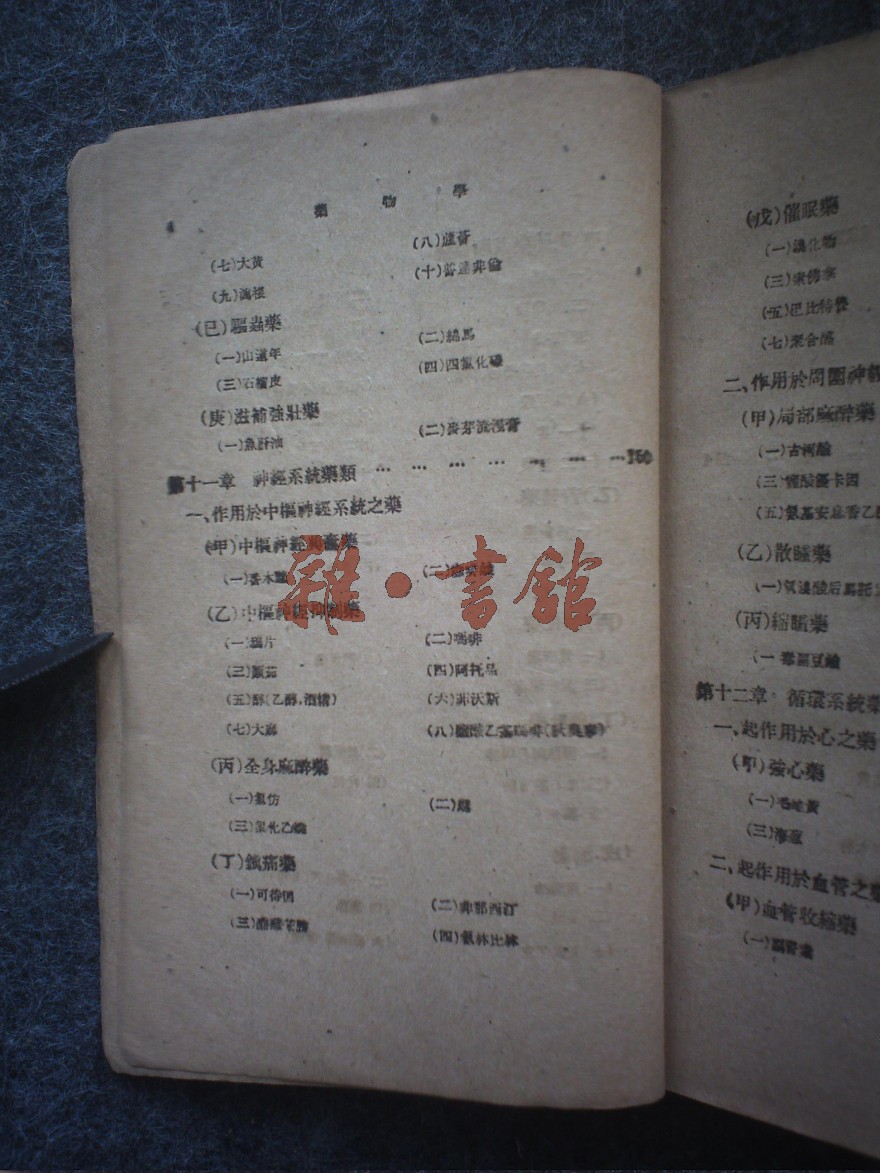 藥物學
(七)大黄
(八)蘆薈
(九)
(十)
(已)驅蟲藥
(一)山道年
(二)綿馬
(三)石榴皮
(四)四氯化碳
(庚)滋補強壯藥
(一)魚肝油
(二)麥芽流浸膏
第十一章 神經系統藥類 … … … … … … …
一、作用於中樞神經系統之藥
(甲)中樞神經興奮藥
(一)
(二)
(乙)中樞神經抑制藥
(一)鴉片
(二)嗎啡
(三)顛茄
(四)阿托品
(五)醇(乙醇,酒精)
(六)菲沃斯
(七)大麻
(八)
(丙)全身麻醉藥
(一)氯仿
(二)醚
(三)氯化乙
(丁)鎮痛藥
(一)可待因
(二)非那西汀
(三)
(四)氨林比林
雜·書館
(戊)催眠藥
(一)溴化物
(三)
(五)巴比特魯
(七)聚合醛
二、作用於周圍神經
(甲)局部麻醉藥
(一)古柯鹼
(三)鹽酸優卡因
(五)氨基安息香乙
(乙)散瞳藥
(一)氫溴酸后馬託
(丙)縮瞳藥
(一 毒扁豆鹼
第十二章 循環系統藥
一、起作用於心之藥
(甲)強心藥
(一)毛地黃
(三)海葱
二、起作用於血管之藥
(甲)血管收縮藥
(一)